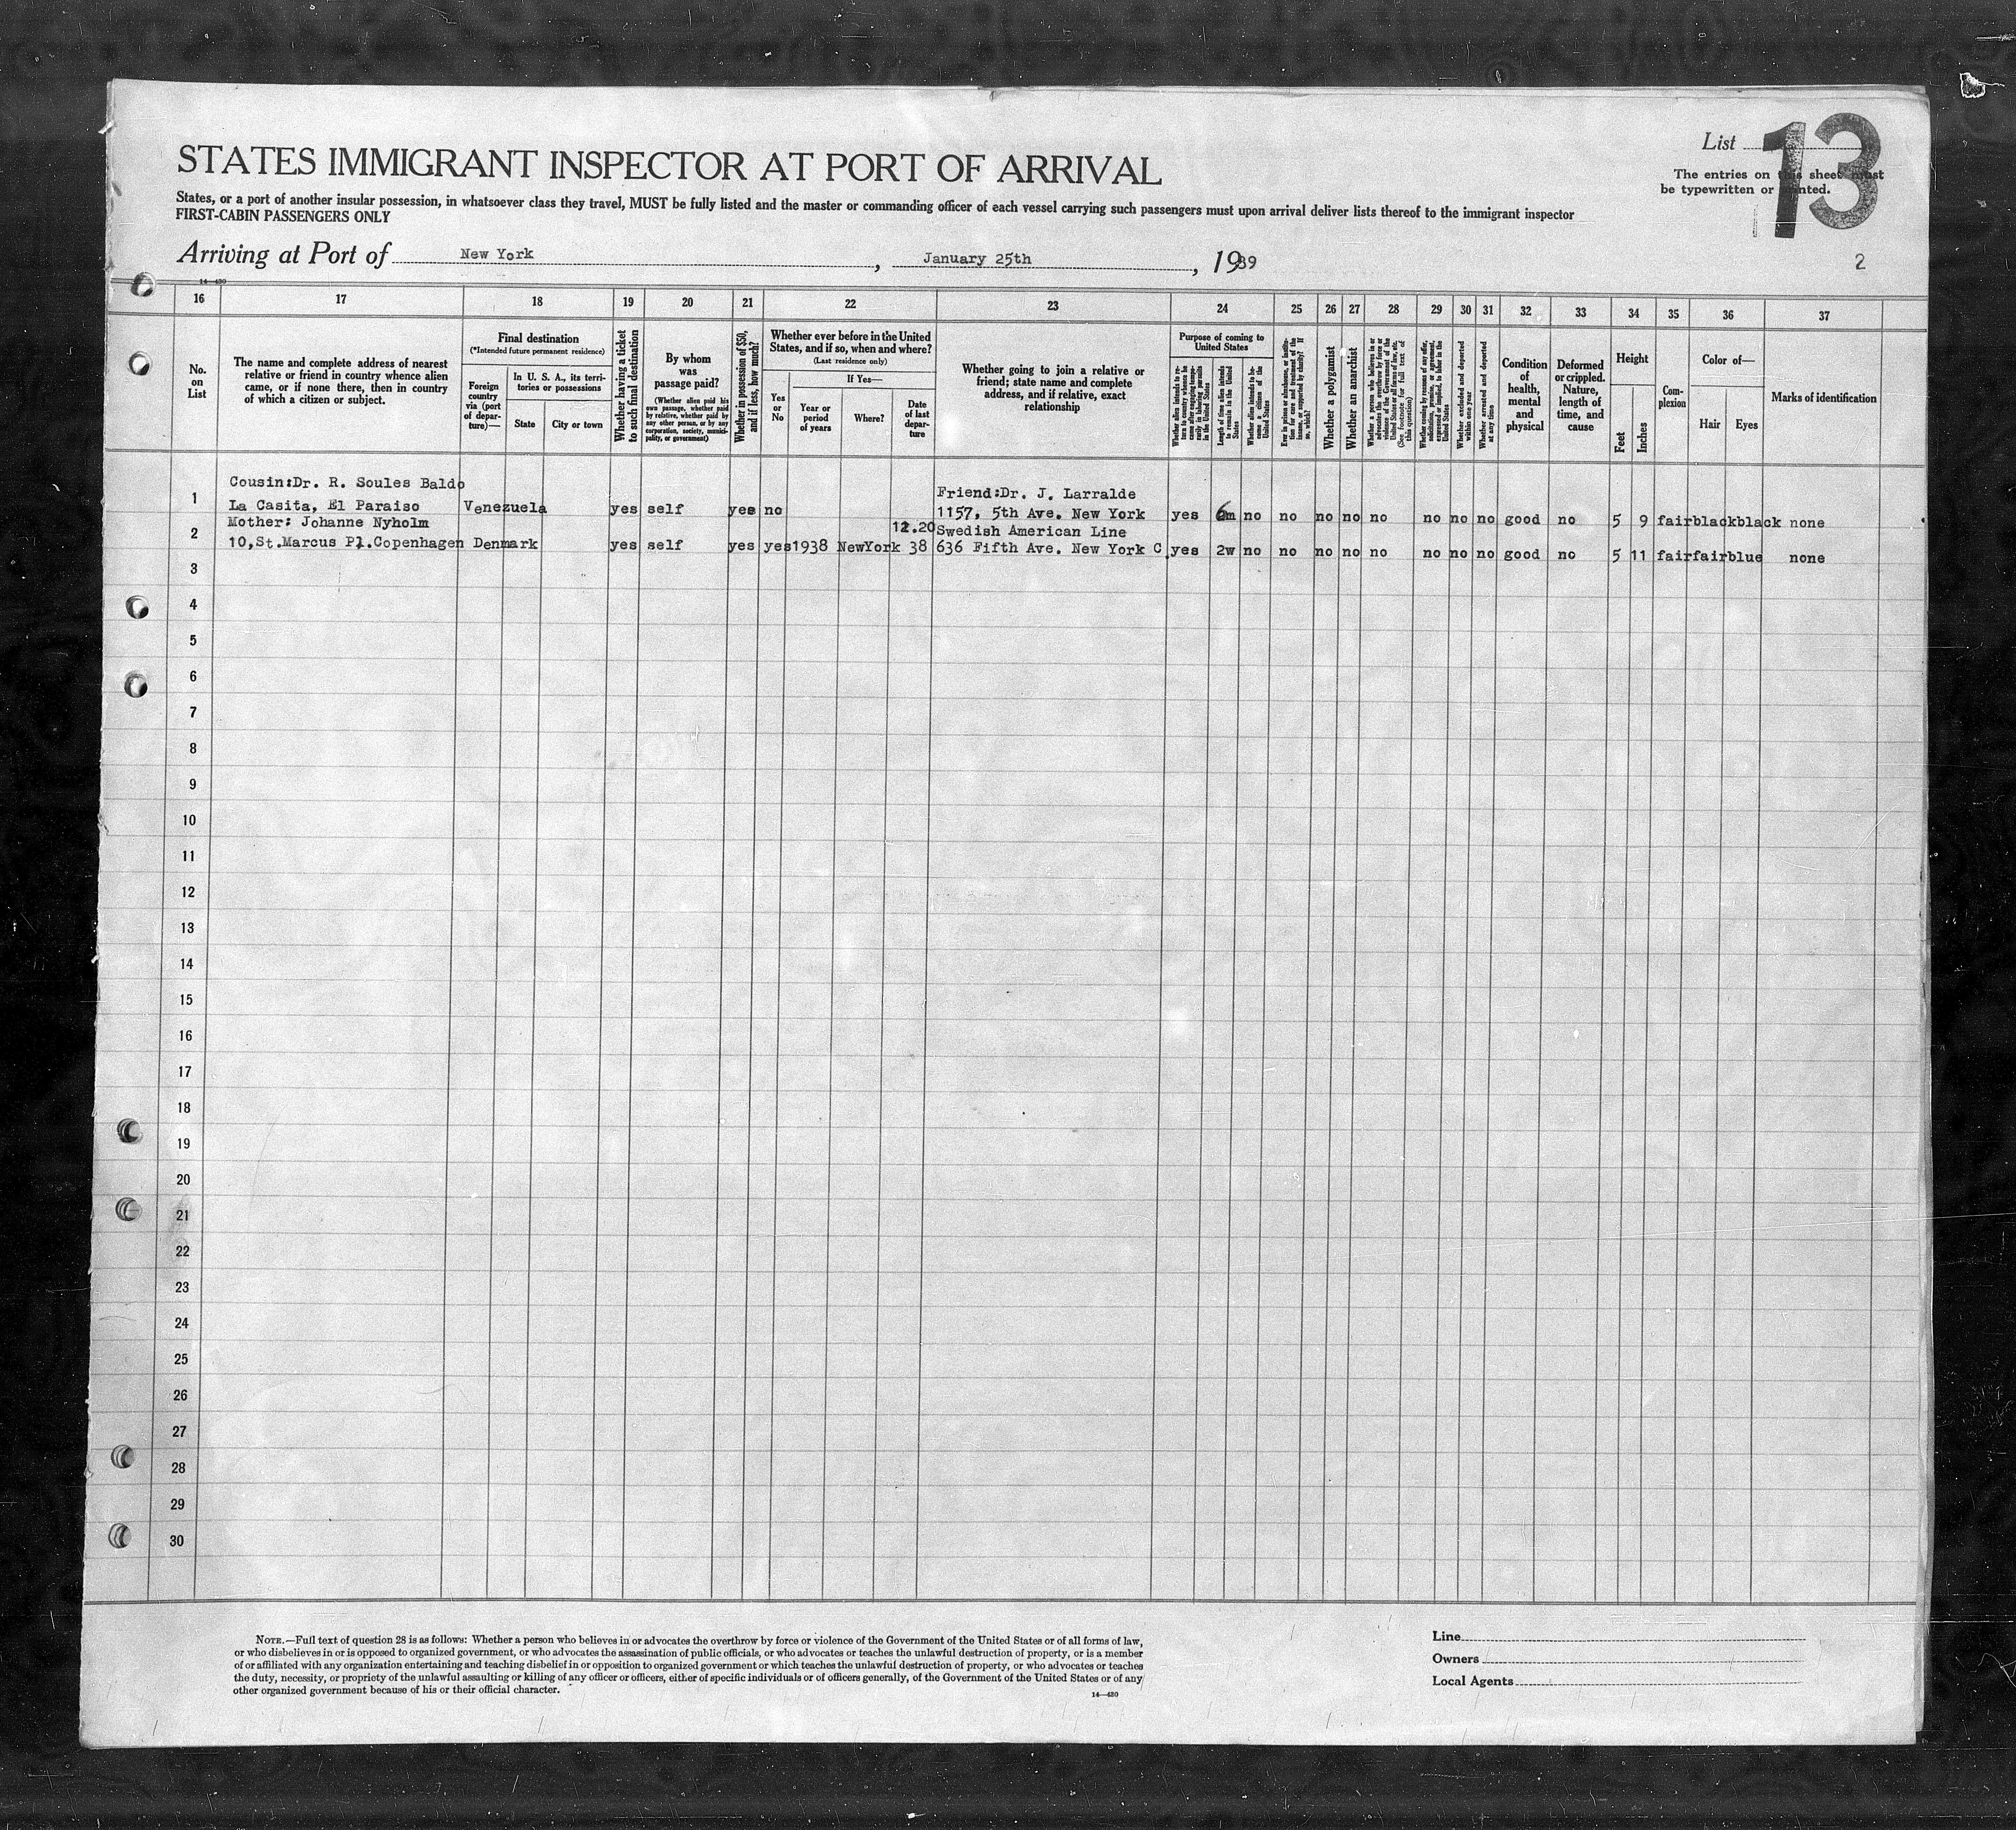 STATES IMMIGRANT INSPECTOR AT PORT OF ARRIVAL
List 13
The entries on this sheet must
be typewritten or printed.
States, or a port of another insular possession, in whatsoever class they travel, MUST be fully listed and the master or commanding officer of each vessel carrying such passengers must upon arrival deliver lists thereof to the immigrant inspector
FIRST-CABIN PASSENGERS ONLY
Arriving at Port of New York, January 25th, 1939
2
14—430
16 17 18 19 20 21 22 23 24 25 26 27 28 29 30 31 32 33 34 35 36 37
No. on List
The name and complete address of nearest relative or friend in country whence alien came, or if none there, then in country of which a citizen or subject.
Final destination
(*Intended future permanent residence)
Foreign country via (port of departure)—
In U. S. A., its territories or possessions
State
City or town
Whether having a ticket to such final destination
By whom was passage paid?
(Whether alien paid his own passage, whether paid by relative, whether paid by any other person, or by any corporation, society, municipality, or government)
Whether in possession of $50, and if less, how much?
Whether ever before in the United States, and if so, when and where?
(Last residence only)
Yes or No
If Yes—
Year or period of years
Where?
Date of last departure
Whether going to join a relative or friend; state name and complete address, and if relative, exact relationship
Purpose of coming to United States
Whether alien intends to return to country whence he came after engaging temporarily in laboring pursuits in the United States
Length of time alien intends to remain in the United States
Whether alien intends to become a citizen of the United States
Ever in prison or almshouse, or institution for care and treatment of the insane, or supported by charity? If so, which?
Whether a polygamist
Whether an anarchist
Whether a person who believes in or advocates the overthrow by force or violence of the Government of the United States or all forms of law, etc. (See footnote for full text of this question)
Whether coming by reasons of any offer, solicitation, promise, or agreement, expressed or implied, to labor in the United States
Whether excluded and deported within one year
Whether arrested and deported at any time
Condition of health, mental and physical
Deformed or crippled. Nature, length of time, and cause
Height
Feet
Inches
Complexion
Color of—
Hair
Eyes
Marks of identification
Cousin:Dr. R. Soules Baldo
1 La Casita, El Paraiso Venezuela yes self yes no Friend:Dr. J. Larralde
1157, 5th Ave. New York yes 6m no no no no no no no no good no 5 9 fair black black none
Mother: Johanne Nyholm 12.20 Swedish American Line
2 10,St.Marcus Pl.Copenhagen Denmark yes self yes yes 1938 NewYork 38 636 Fifth Ave. New York C. yes 2w no no no no no no no no good no 5 11 fair fair blue none
3
4
5
6
7
8
9
10
11
12
13
14
15
16
17
18
19
20
21
22
23
24
25
26
27
28
29
30
NOTE.—Full text of question 28 is as follows: Whether a person who believes in or advocates the overthrow by force or violence of the Government of the United States or of all forms of law,
or who disbelieves in or is opposed to organized government, or who advocates the assassination of public officials, or who advocates or teaches the unlawful destruction of property, or is a member
of or affiliated with any organization entertaining and teaching disbelief in or opposition to organized government or which teaches the unlawful destruction of property, or who advocates or teaches
the duty, necessity, or propriety of the unlawful assaulting or killing of any officer or officers, either of specific individuals or of officers generally, of the Government of the United States or of any
other organized government because of his or their official character.
14—430
Line
Owners
Local Agents